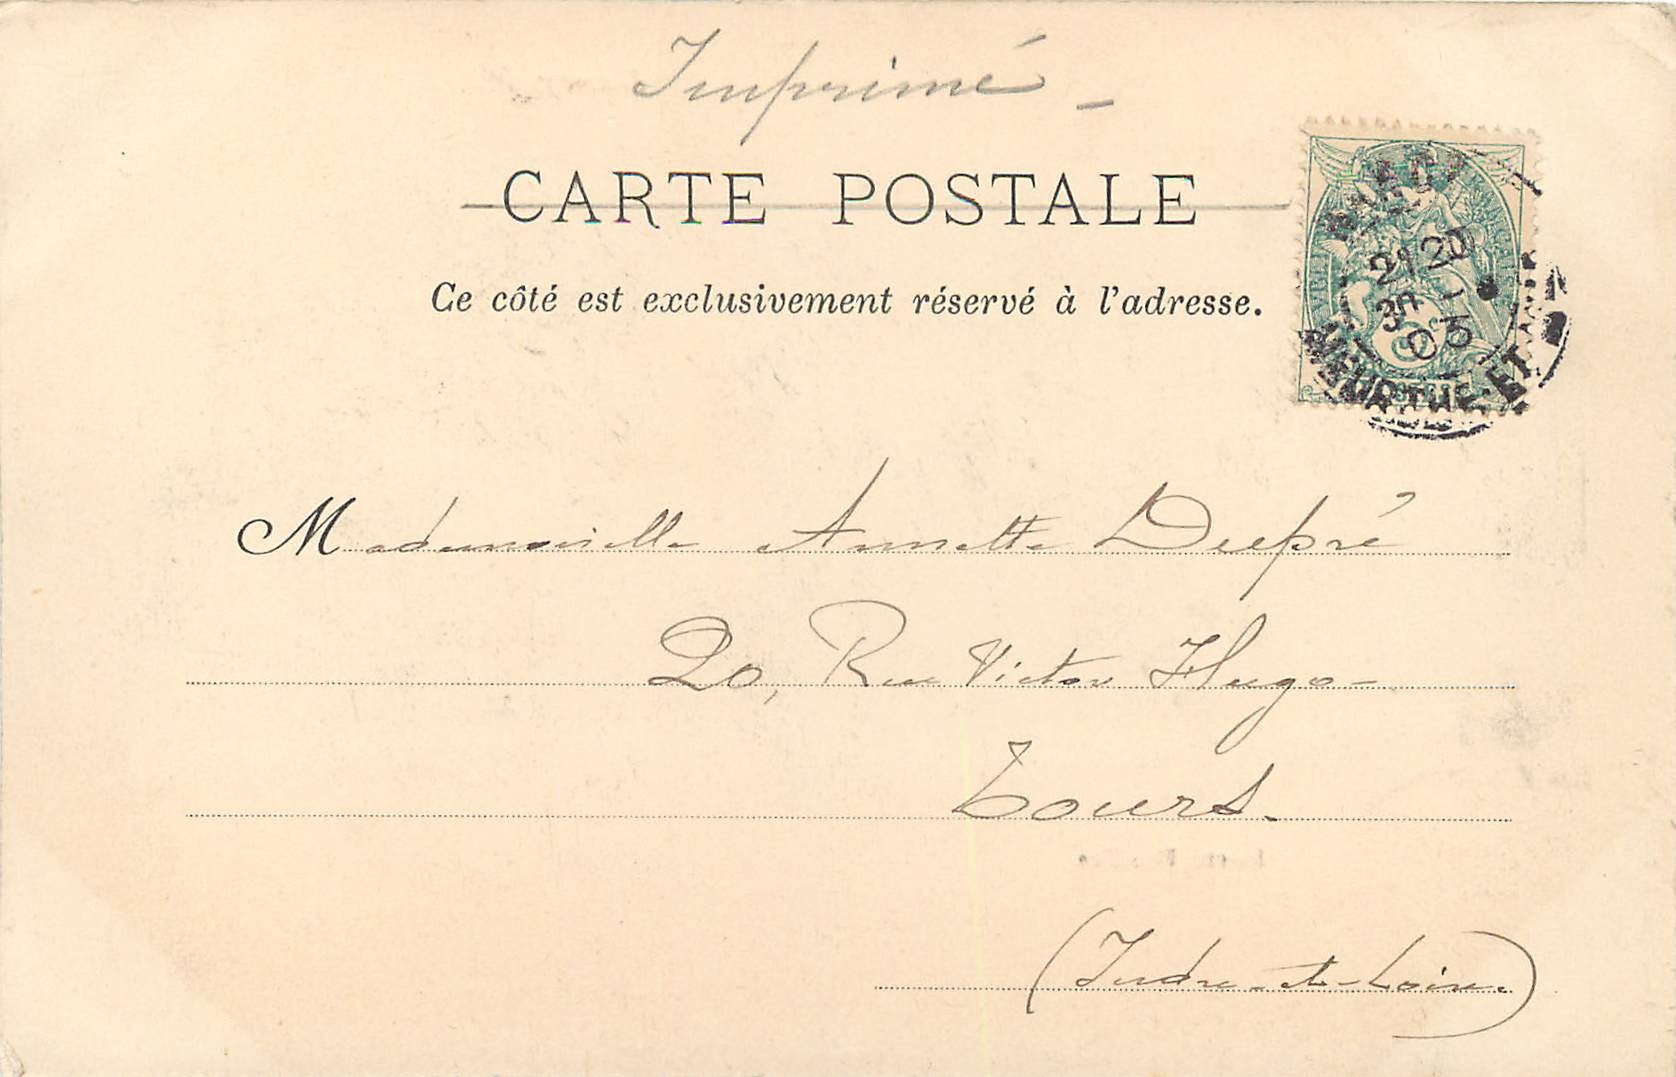 Imprimé
CARTE POSTALE
Ce côté est exclusivement réservé à l'adresse.
21 20
30
03
MEURTHE-ET-
Mademoiselle Annette Dupré
20, Rue Victor Hugo-
Tours.
(Indre-et-Loire.)